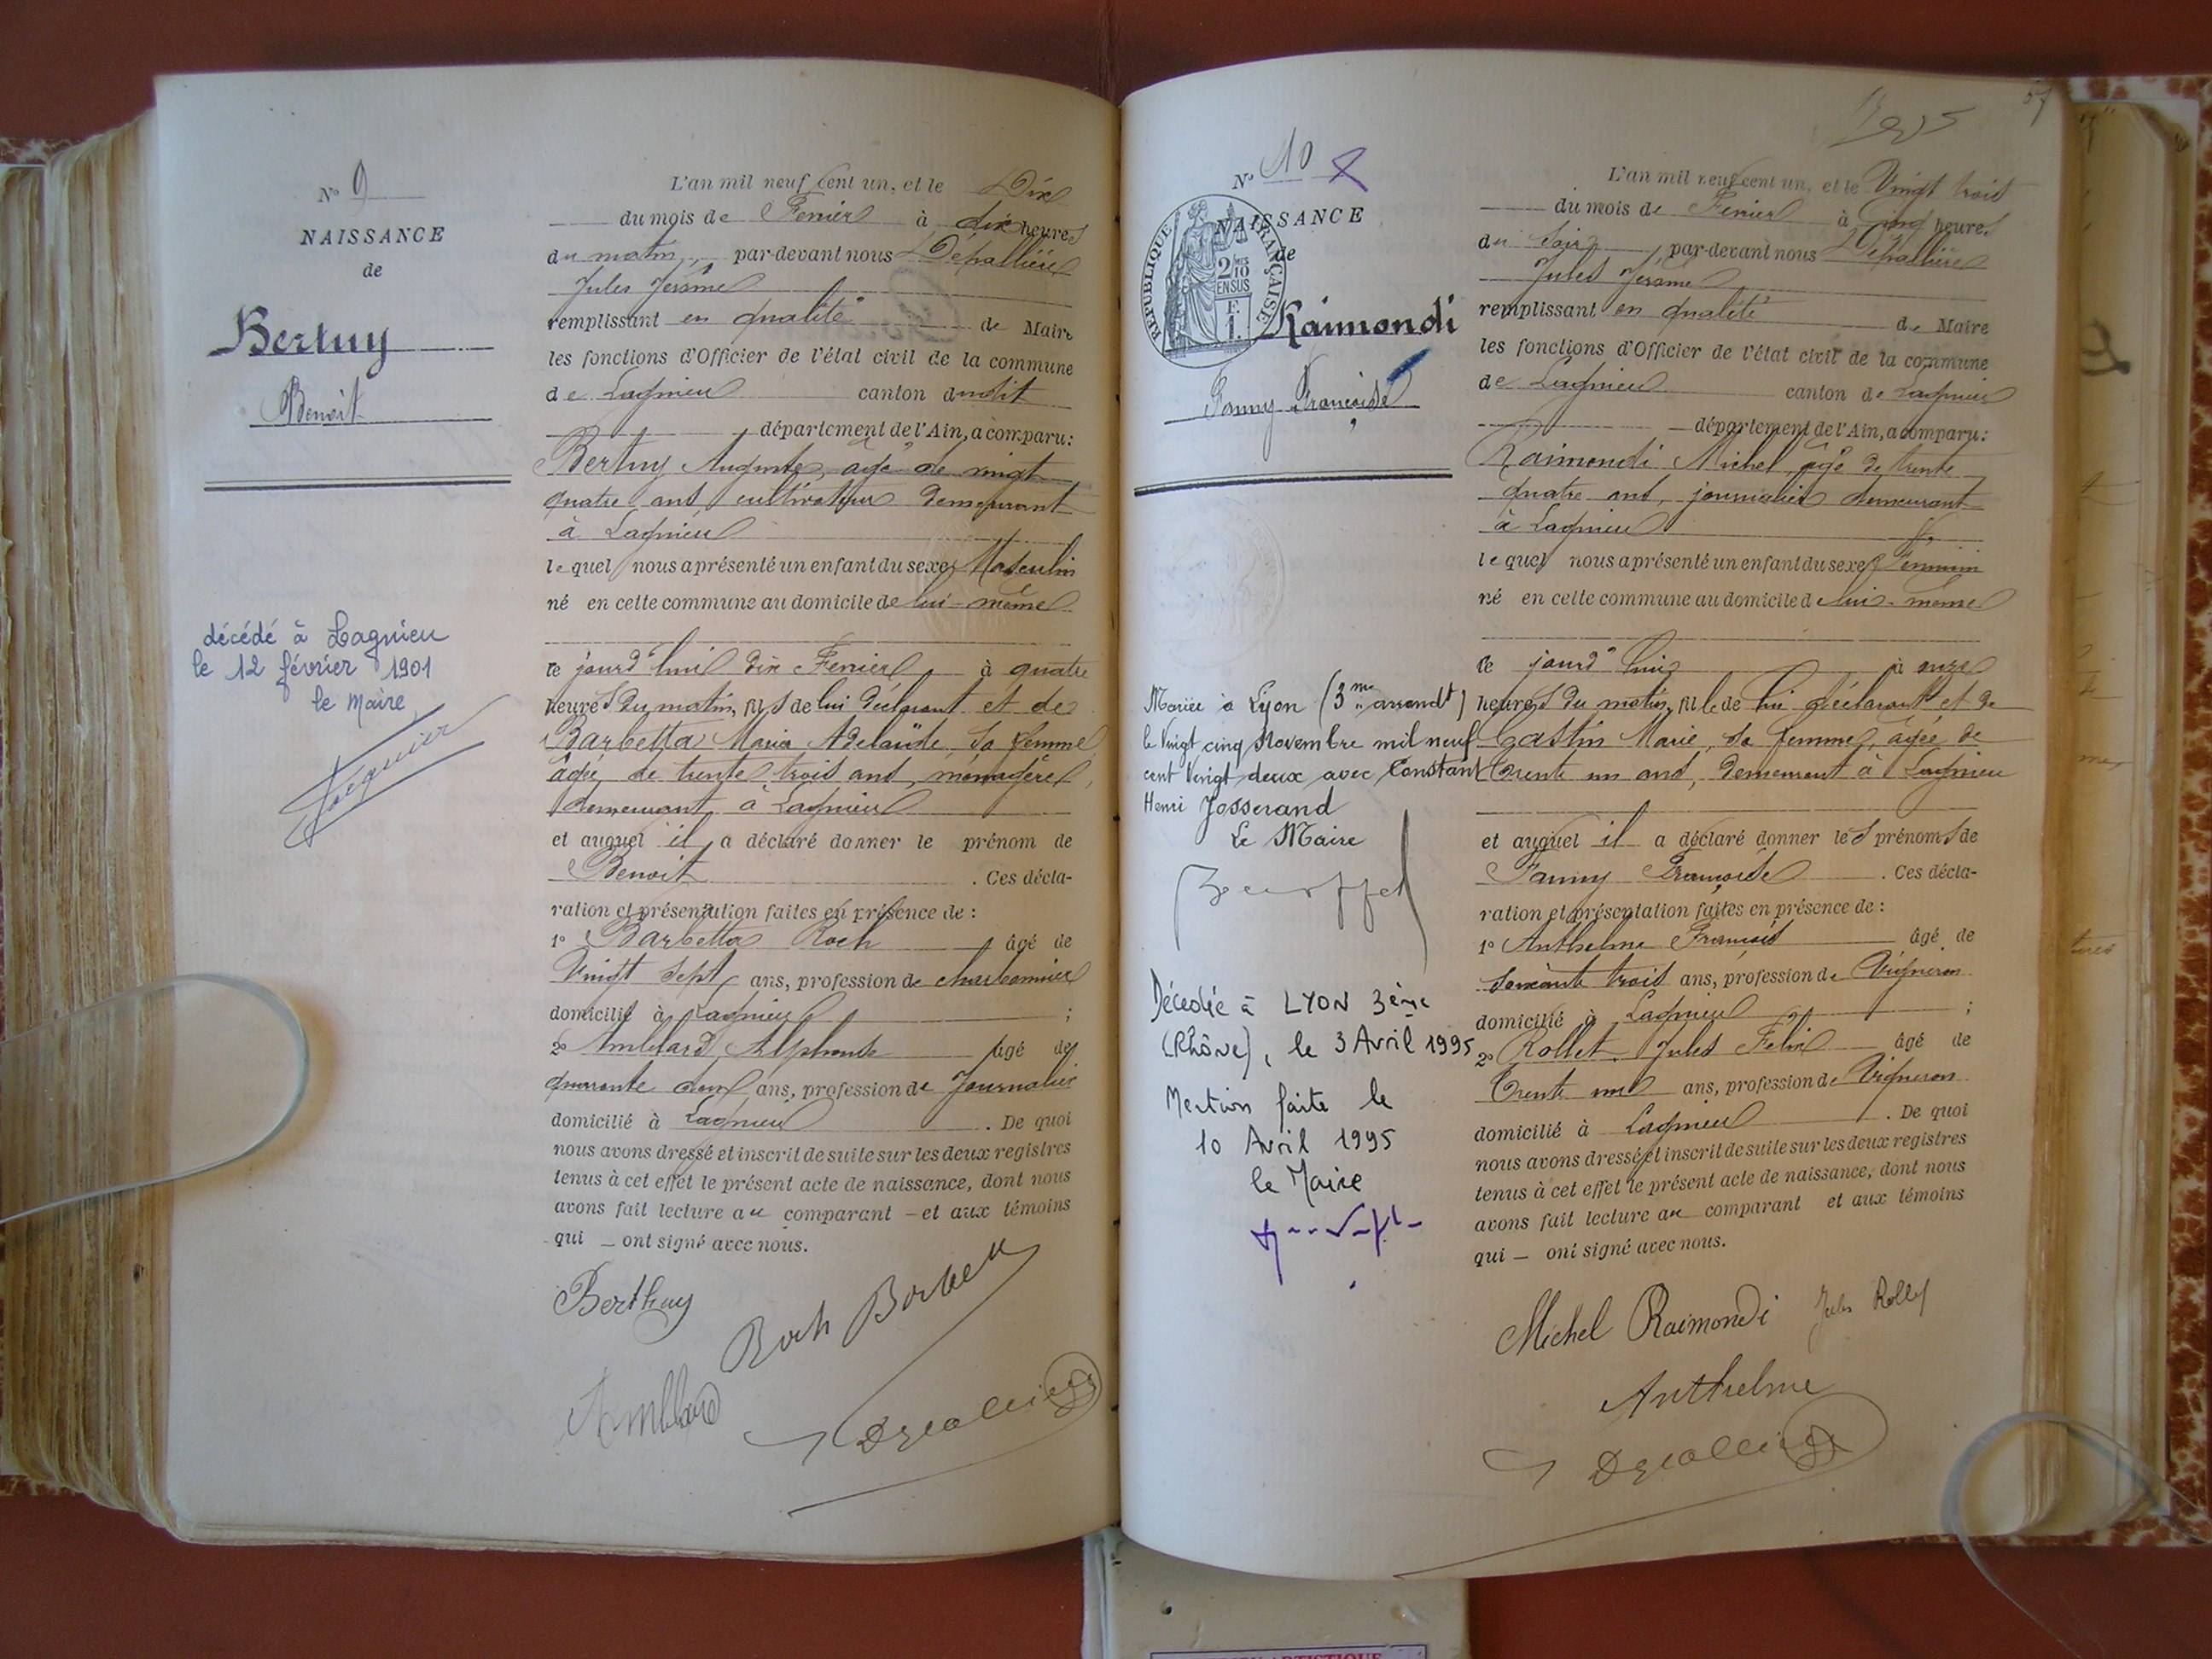 N° 9
NAISSANCE
de
Bertuy
Benoit
décédé à Lagnieu
le 12 février 1901
le Maire
L'an mil neuf cent un, et le Dix
du mois de Fevrier à dix heures
du matin, par-devant nous Dépallière
Jules Jérôme
remplissant en qualité de Maire
les fonctions d'Officier de l'état civil de la commune
de Lagnieu canton dudit
département de l'Ain, a comparu:
Bertuy Auguste, âgé de vingt
quatre ans, cultivateur demeurant
à Lagnieu
lequel nous a présenté un enfant du sexe Masculin
né en cette commune au domicile de lui-même
ce jourd'hui dix Fevrier à quatre
heures du matin, fils de lui déclarant et de
Barbetta Maria Adelaïde, sa femme,
âgée de trente trois ans, ménagère,
demeurant à Lagnieu
et auquel il a déclaré donner le prénom de
Benoit . Ces décla-
ration et présentation faites en présence de :
1° Barbetta Roch âgé de
Vingt sept ans, profession de charbonnier
domicilié à Lagnieu ;
2° Amblard Alphonse âgé de
quarante deux ans, profession de Journalier
domicilié à Lagnieu . De quoi
nous avons dressé et inscrit de suite sur les deux registres
tenus à cet effet le présent acte de naissance, dont nous
avons fait lecture au comparant - et aux témoins
qui - ont signé avec nous.
Berthuy
Roch Barbetta
Amblard
Depallière
57
N° 10
NAISSANCE
de
REPUBLIQUE FRANÇAISE
2/10 EN SUS
Raimondi
Fanny Françoise
Mariée à Lyon (3me arrondt)
le Vingt cinq Novembre mil neuf
cent Vingt deux avec Constant
Henri Josserand
Le Maire
Décédée à LYON 3ème
(Rhône), le 3 Avril 1995
Mention faite le
10 Avril 1995
le Maire
L'an mil neuf cent un, et le Vingt trois
du mois de Fevrier à cinq heures
du soir, par-devant nous Dépallière
Jules Jérôme
remplissant en qualité de Maire
les fonctions d'Officier de l'état civil de la commune
de Lagnieu canton de Lagnieu
département de l'Ain, a comparu:
Raimondi Michel, âgé de trente
quatre ans, journalier demeurant
à Lagnieu
lequel nous a présenté un enfant du sexe Féminin
né en cette commune au domicile de lui-même
ce jourd'hui à onze
heures du matin, fille de lui déclarant et de
Gastin Marie, sa femme, âgée de
Trente un ans, demeurant à Lagnieu
et auquel il a déclaré donner les prénoms de
Fanny Françoise . Ces décla-
ration et présentation faites en présence de :
1° Anthelme François âgé de
soixante trois ans, profession de Vigneron
domicilié à Lagnieu ;
2° Rollet Jules Félix âgé de
Trente un ans, profession de Vigneron
domicilié à Lagnieu . De quoi
nous avons dressé et inscrit de suite sur les deux registres
tenus à cet effet le présent acte de naissance, dont nous
avons fait lecture au comparant et aux témoins
qui - ont signé avec nous.
Michel Raimondi
Jules Rollet
Anthelme
Depallière